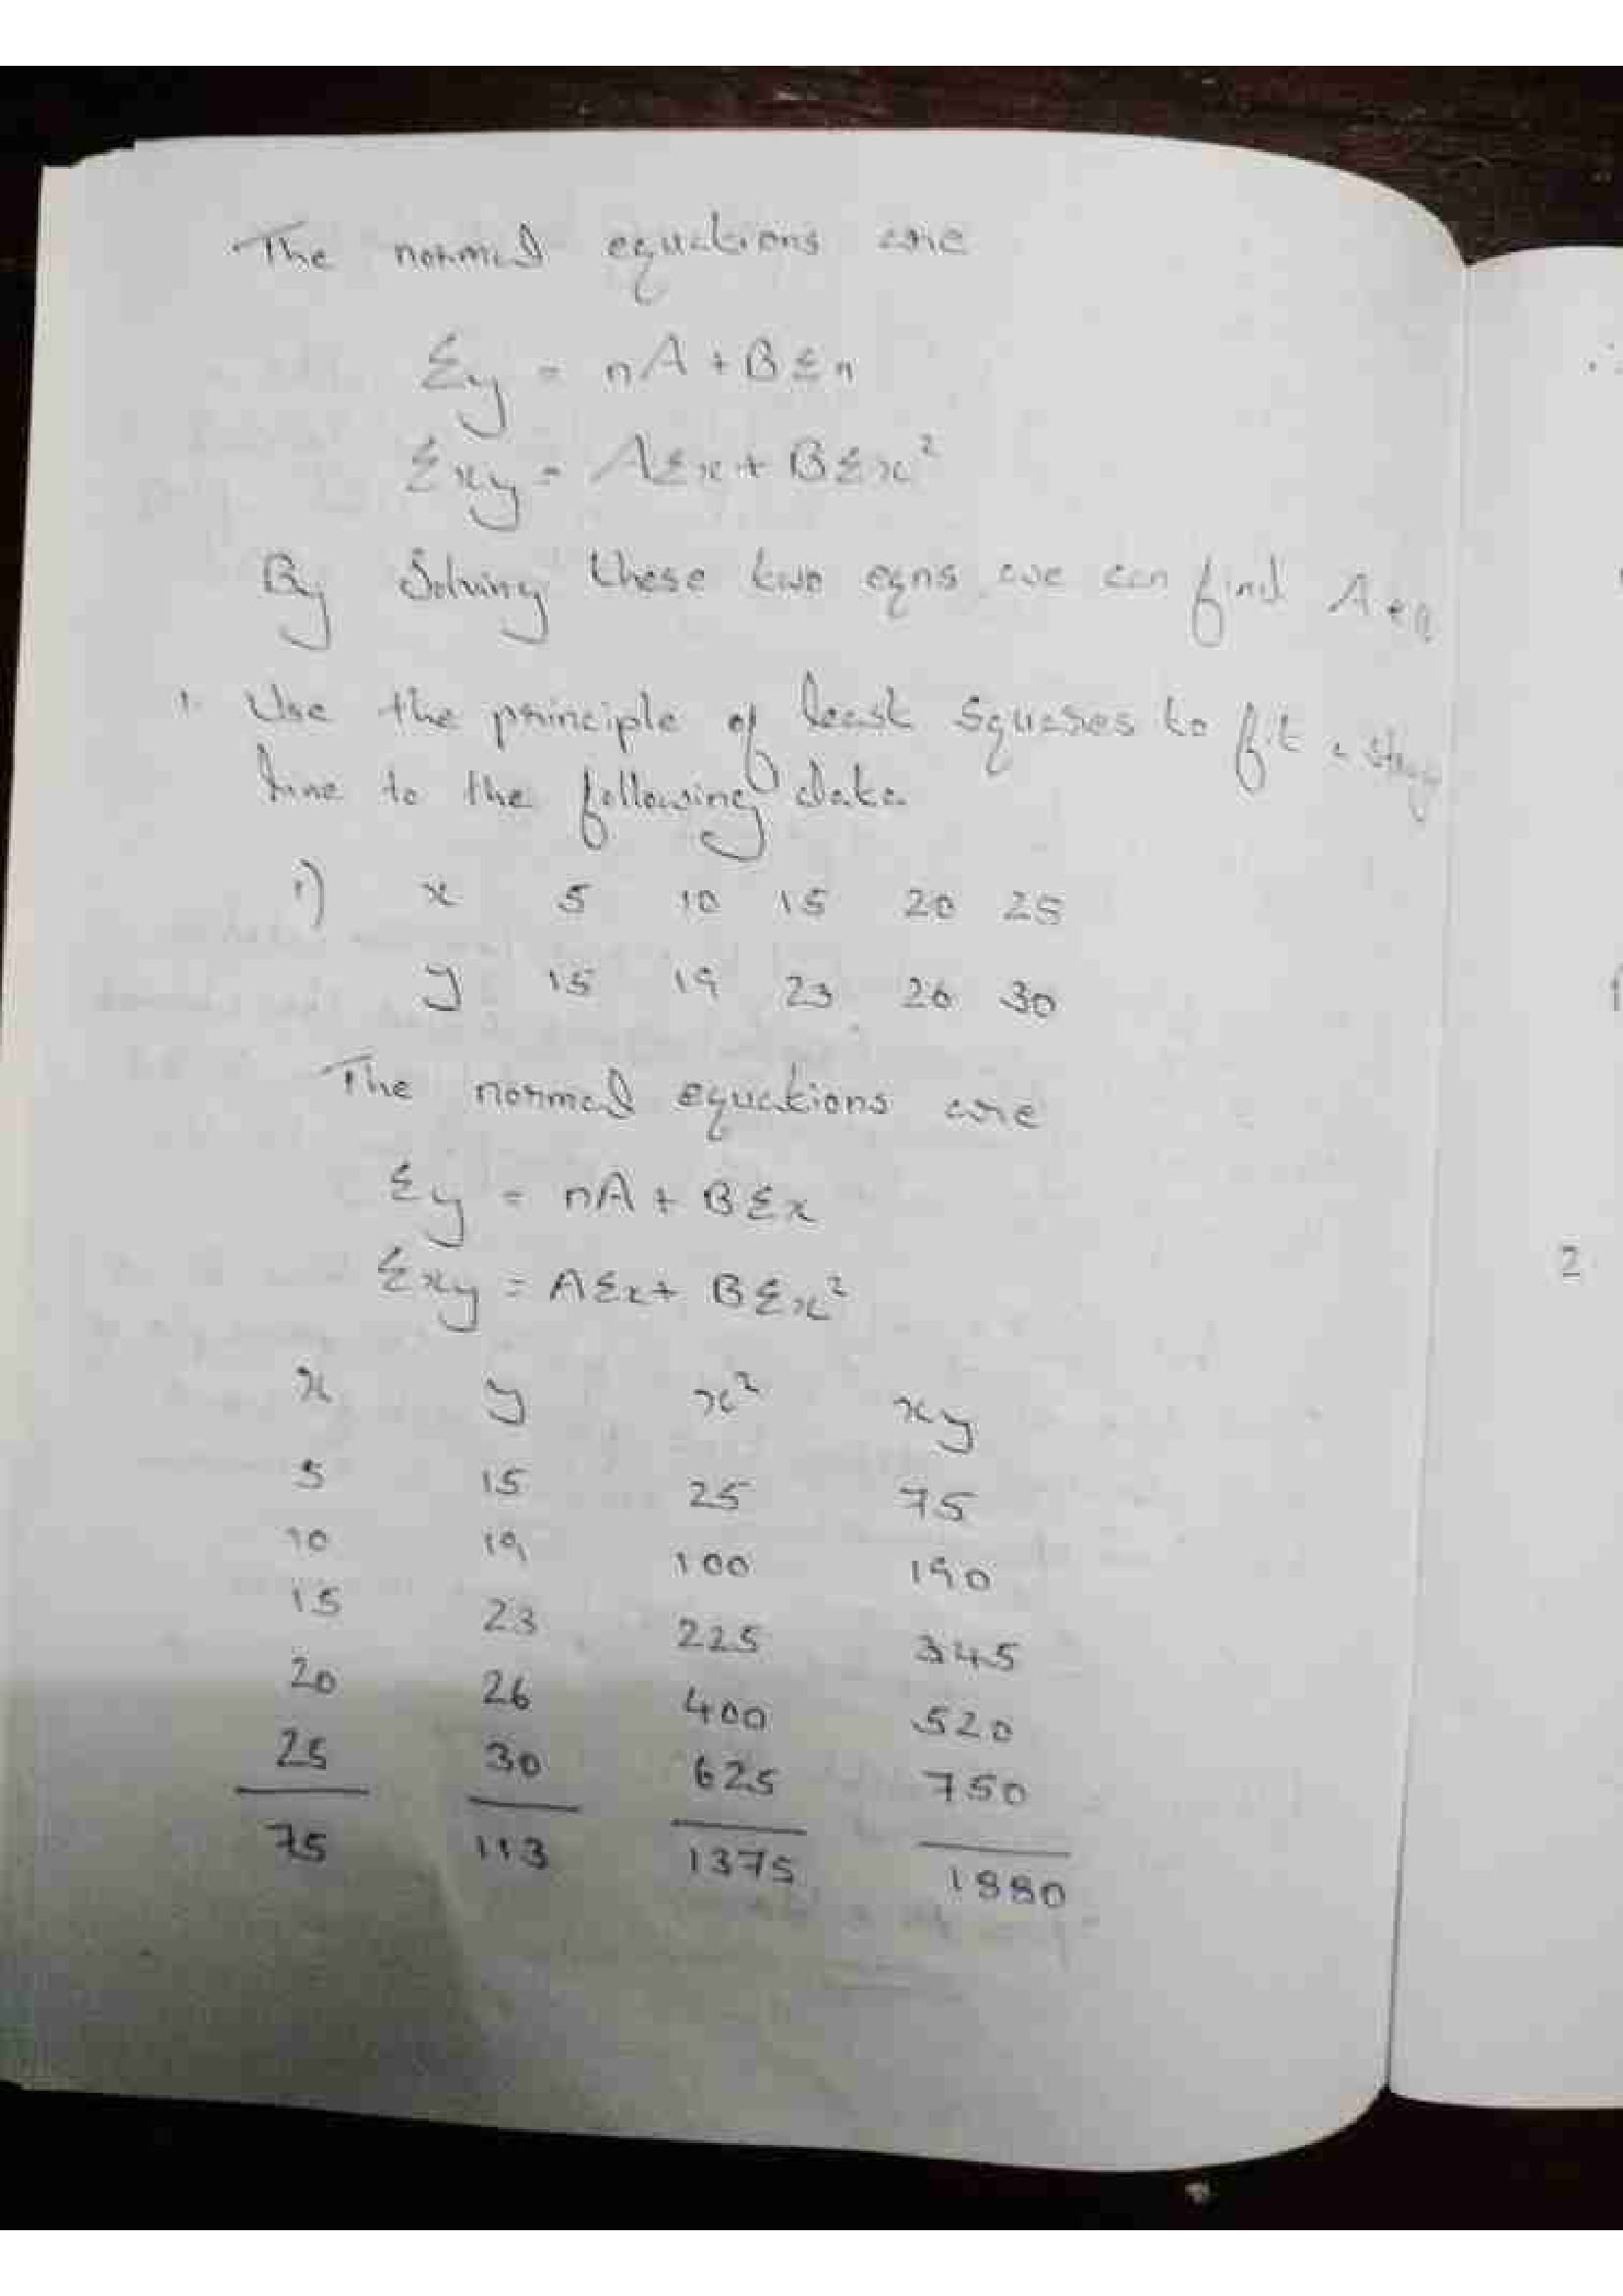 The normal equations are
Σy = nA + BΣn
Σxy = AΣx + BΣx²
By Solving these two eqns we can find A
1. Use the principle of least squares to fit a
line to the following data
i) x 5 10 15 20 25
y 15 19 23 26 30
The normal equations are
Σy = nA + BΣx
Σxy = AΣx + BΣx²
x y x² xy
5 15 25 75
10 19 100 190
15 23 225 345
20 26 400 520
25 30 625 750
75 113 1375 1880
2